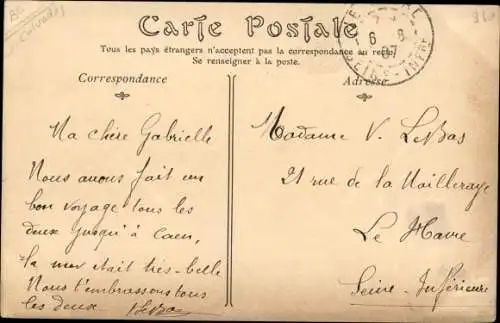 Carte Postale
Tous les pays étrangers n'acceptent pas la correspondance au recto.
Se renseigner à la poste.
Correspondance
Adresse
6 8
07
SEINE-INFRE
Calvados
Ma chère Gabrielle
Nous avons fait un
bon voyage tous les
deux jusqu'à Caen,
la mer était très-belle
Nous t'embrassons tous
les deux
VLeBas
Madame V. LeBas
21 rue de la Mailleraye
Le Havre
Seine-Inférieure